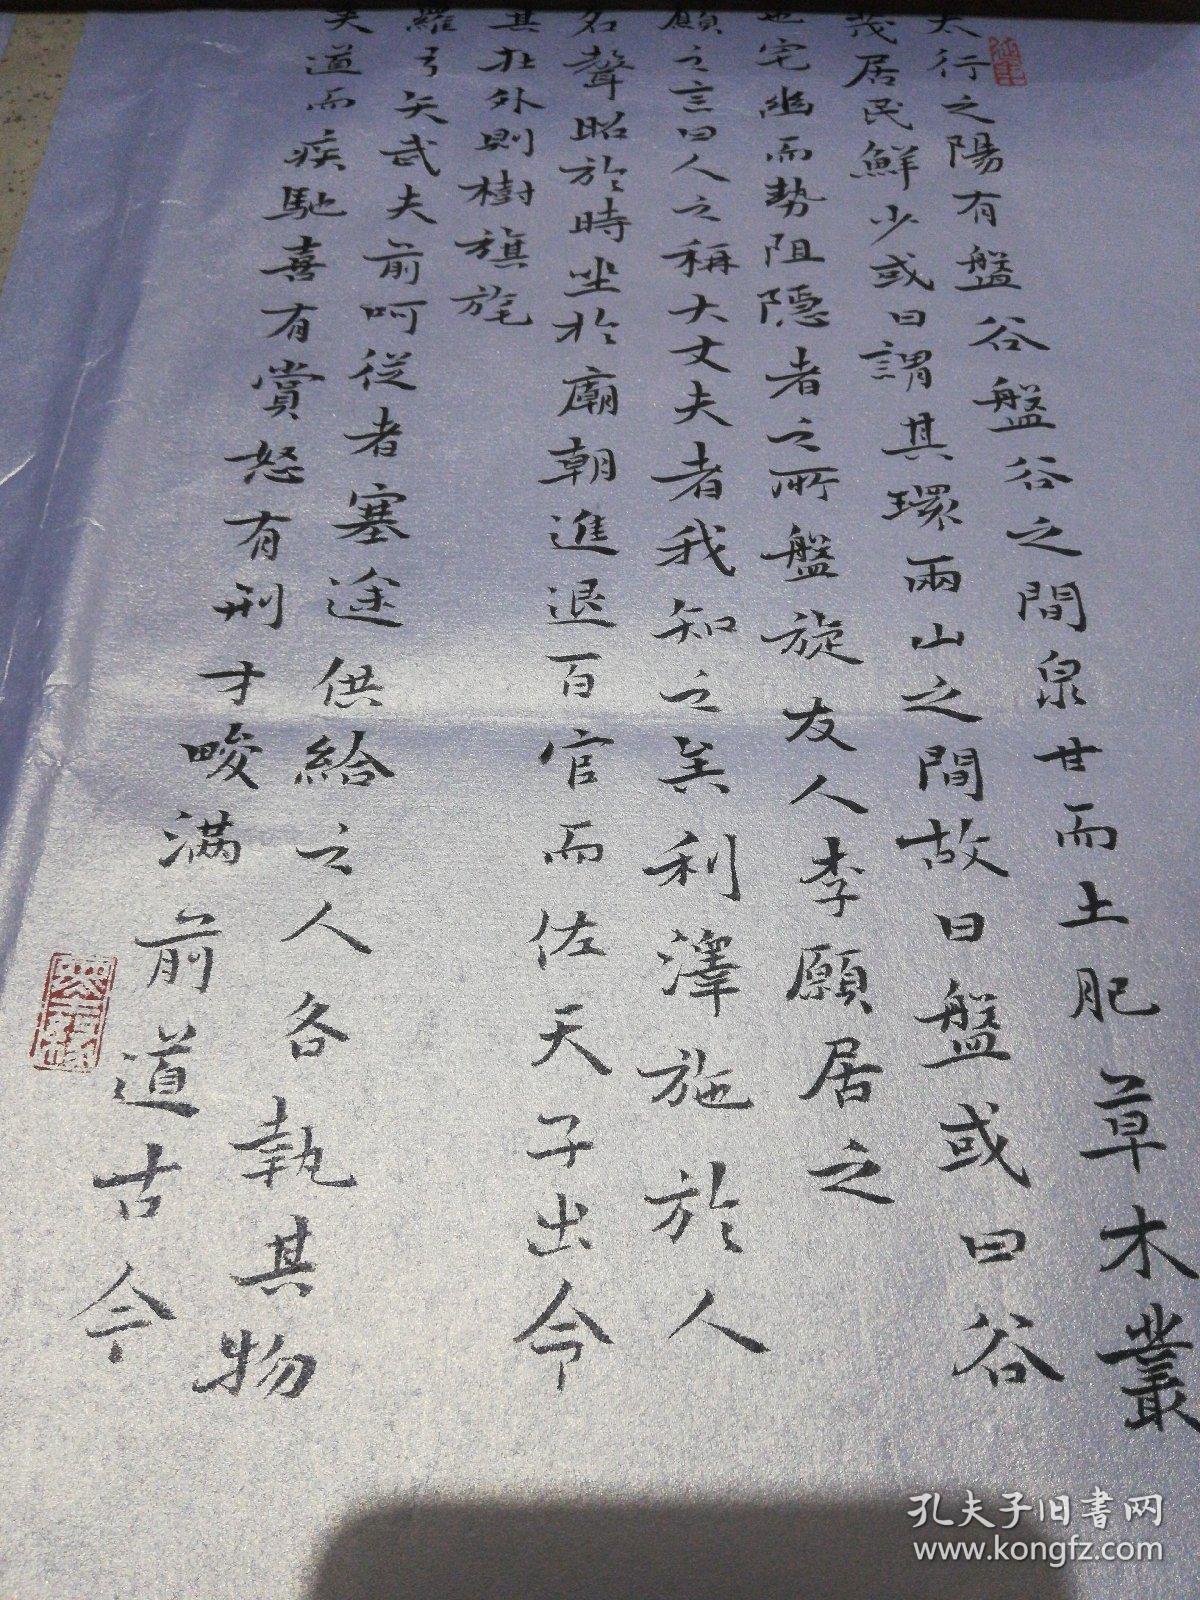 太行之陽有盤谷盤谷之間泉甘而土肥草木叢
茂居民鮮少或曰謂其環兩山之間故曰盤或曰谷
也宅幽而勢阻隱者之所盤旋友人李願居之
願之言曰人之稱大丈夫者我知之矣利澤施於人
名聲昭於時坐於廟朝進退百官而佐天子出令
其在外則樹旗旄
羅弓矢武夫前呵從者塞途供給之人各執其物
夾道而疾馳喜有賞怒有刑才畯滿前道古今
孔夫子旧書网
www.kongfz.com